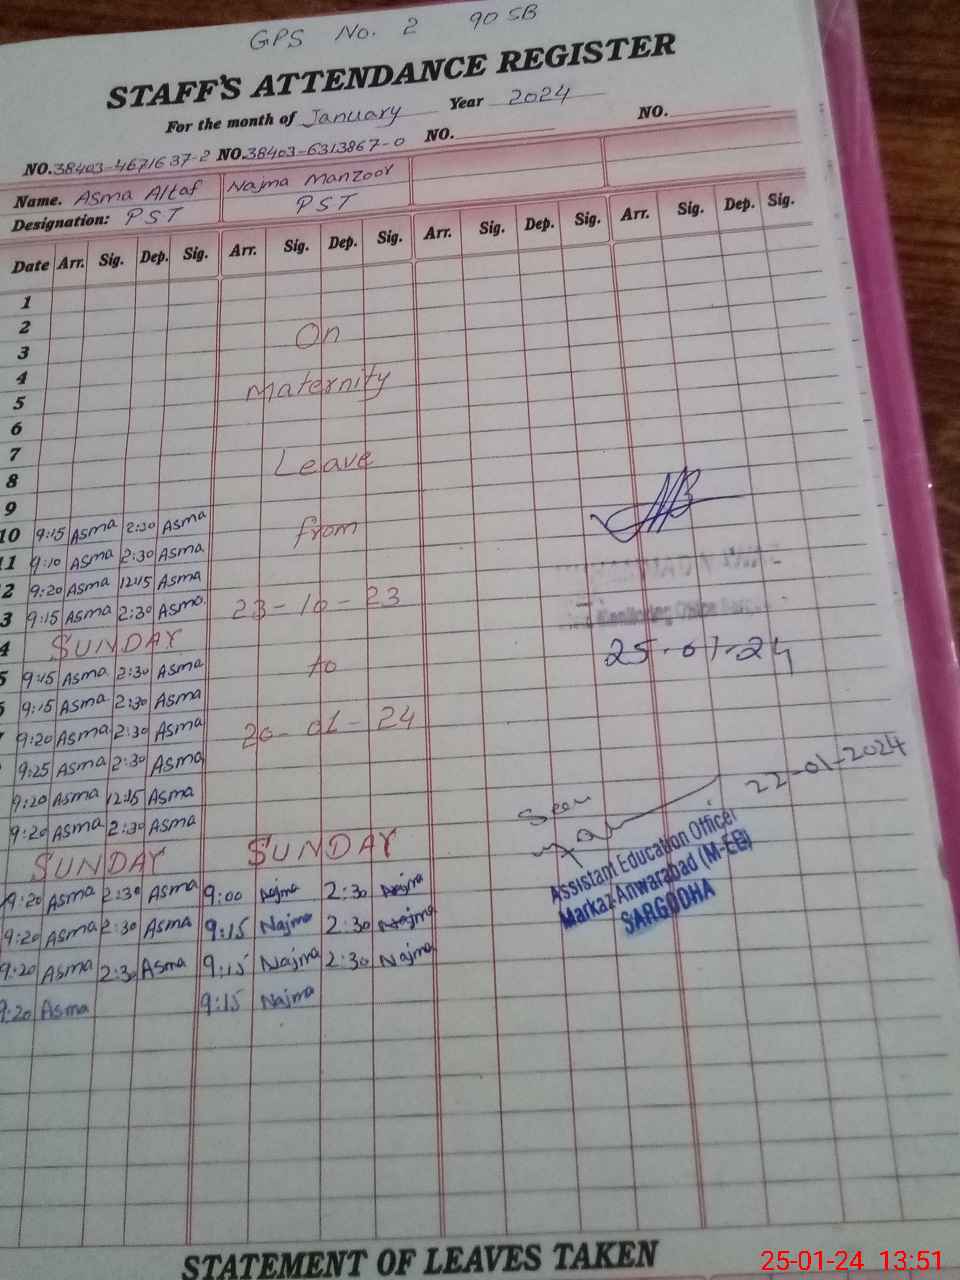 GPS No. 2 90 SB
STAFF'S ATTENDANCE REGISTER
For the month of January Year 2024
NO. 38403-4671637-2 NO. 38403-6313867-0 NO. NO.
Name. Asma Altaf Najma Manzoor
Designation: PST PST
Date Arr. Sig. Dep. Sig. Arr. Sig. Dep. Sig. Arr. Sig. Dep. Sig. Arr. Sig. Dep. Sig.
1
2 On
3
4 maternity
5
6
7 Leave
8
9
10 9:15 Asma 2:30 Asma from
11 9:10 Asma 2:30 Asma
2 9:20 Asma 12:15 Asma
3 9:15 Asma 2:30 Asma 23-10-23
4 SUNDAY
5 9:15 Asma 2:30 Asma to
9:15 Asma 2:30 Asma
9:20 Asma 2:30 Asma 20-01-24
9:25 Asma 2:30 Asma
9:20 Asma 12:15 Asma
9:20 Asma 2:30 Asma
SUNDAY SUNDAY
9:20 Asma 2:30 Asma 9:00 Najma 2:30 Najma
9:20 Asma 2:30 Asma 9:15 Najma 2:30 Najma
9:20 Asma 2:30 Asma 9:15 Najma 2:30 Najma
9:20 Asma 9:15 Najma
Monitoring Office
25-01-24
Seen
22-01-2024
Assistant Education Officer
Markaz Anwarabad (M-EE)
SARGODHA
STATEMENT OF LEAVES TAKEN
25-01-24 13:51